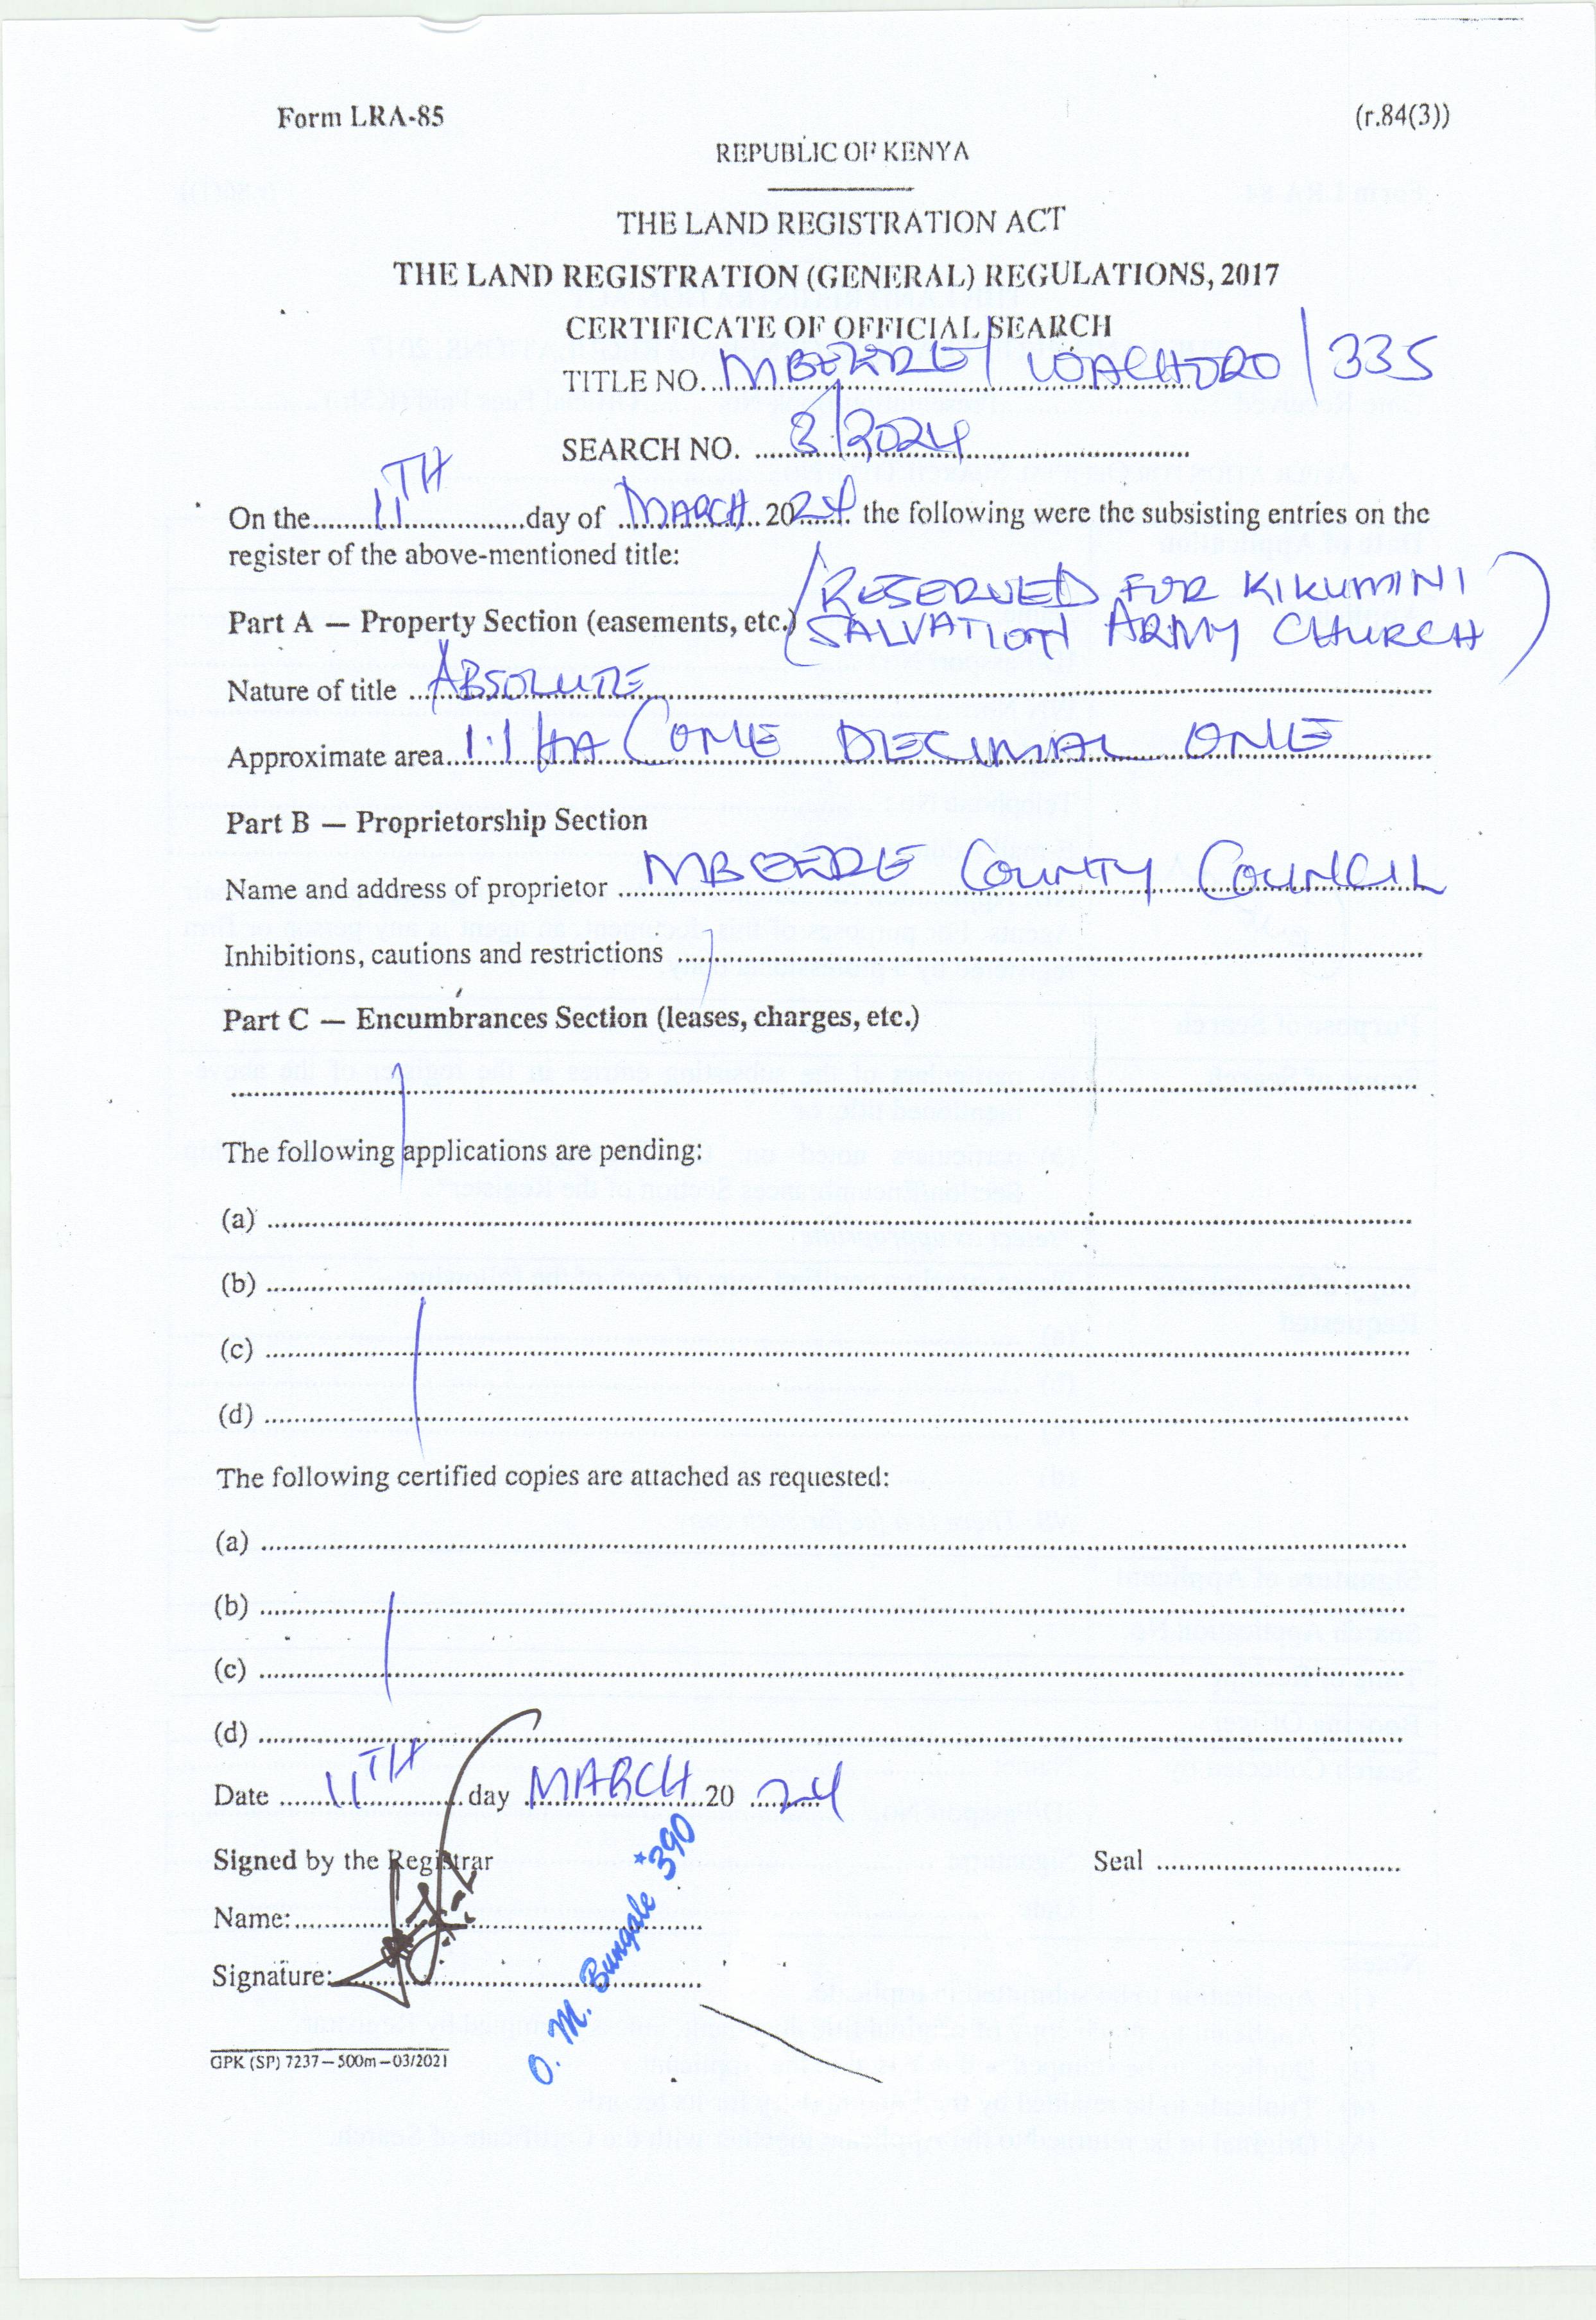 Form LRA-85 (r.84(3))
REPUBLIC OF KENYA
THE LAND REGISTRATION ACT
THE LAND REGISTRATION (GENERAL) REGULATIONS, 2017
CERTIFICATE OF OFFICIAL SEARCH
TITLE NO. MBEERE / WACHORO / 335
SEARCH NO. 3/2024
On the 11TH day of MARCH 2024 the following were the subsisting entries on the
register of the above-mentioned title:
(RESERVED FOR KIKUMINI
Part A — Property Section (easements, etc.) SALVATION ARMY CHURCH)
Nature of title ABSOLUTE
Approximate area 1.1 HA (ONE DECIMAL ONE
Part B — Proprietorship Section
Name and address of proprietor MBEERE COUNTY COUNCIL
Inhibitions, cautions and restrictions
Part C — Encumbrances Section (leases, charges, etc.)
The following applications are pending:
(a)
(b)
(c)
(d)
The following certified copies are attached as requested:
(a)
(b)
(c)
(d)
Date 11TH day MARCH 20 24
Signed by the Registrar Seal
Name:
Signature:
O. M. Bungale *390
GPK (SP) 7237—500m—03/2021